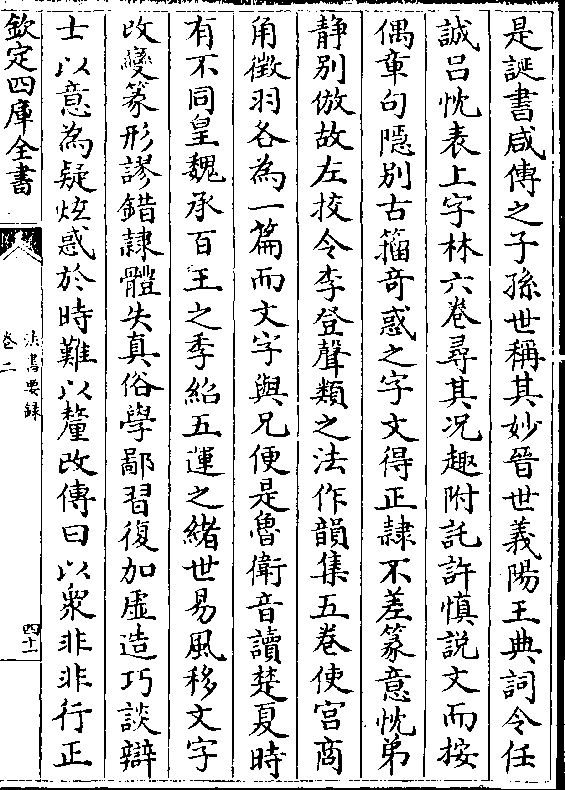 是誕書咸傳之子孫世稱其妙晉世義陽王典詞令任
誠吕忱表上字林六卷尋其况趣附託許慎説文而按
偶章句隠别古籀奇惑之字文得正隷不差篆意忱弟
静别倣故左挍令李登聲類之法作韻集五卷使宫商
角徴羽各為一篇而文字與兄便是魯衛音讀楚夏時
有不同皇魏承百王之季紹五運之緒世易風移文字
改變篆形謬錯隷體失真俗學鄙習復加虚造巧談辯
士以意為疑炫惑於時難以釐改傳曰以衆非非行正
欽定四庫全書
法書要録
卷二
四十一